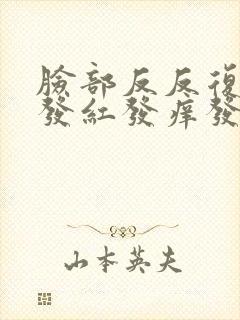 臉部反反復
發紅發痒發
山本英夫